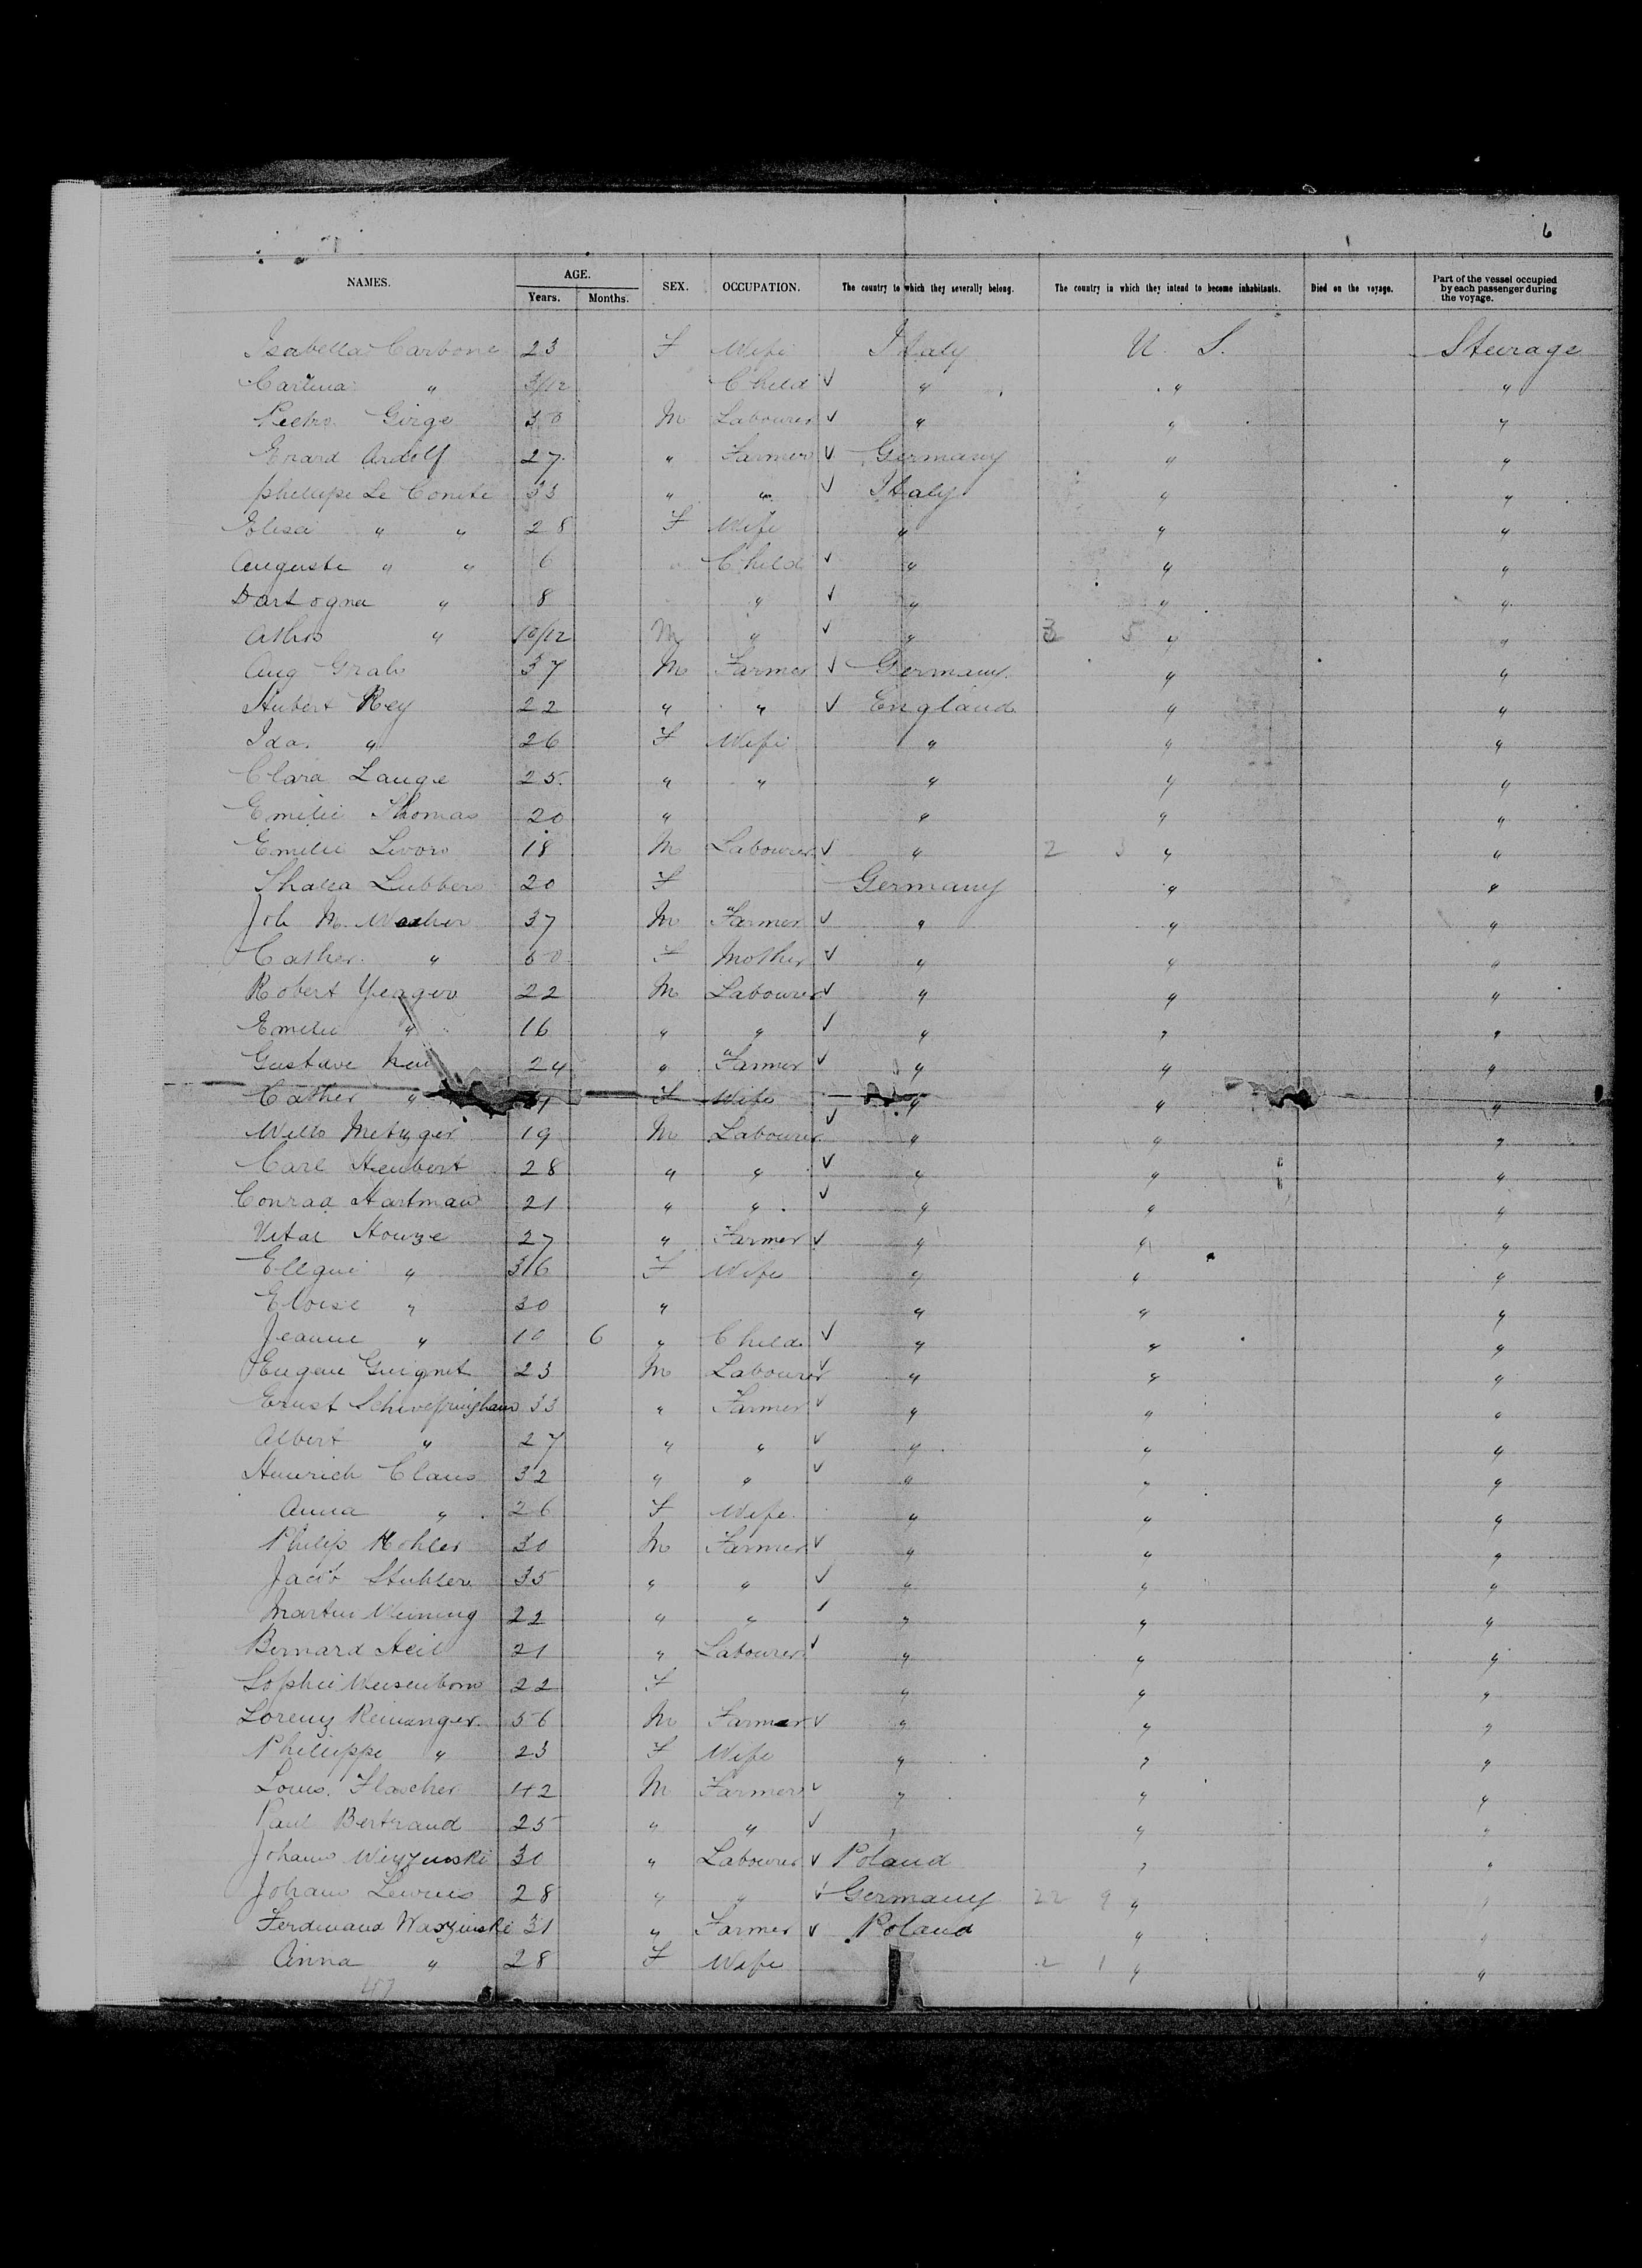 6
NAMES. AGE. Years. Months. SEX. OCCUPATION. The country to which they severally belong. The country in which they intend to become inhabitants. Died on the voyage. Part of the vessel occupied by each passenger during the voyage.
Isabella Carbone 23 F Wife Italy U. S. Steerage
Carlina " 3/12 Child √ " " "
Pietro Girge 30 M Labourer √ " " "
Erard Ardolf 27 " Farmer √ Germany " "
phelipe Le Conete 33 " " √ Italy " "
Elisa " " 28 F Wife " " "
Auguste " " 6 Child √ " " "
Dartogna " 8 " √ " " "
Athos " 10/12 M " √ " 3 5 " "
Aug Grab 37 M Farmer √ Germany " "
Hubert Rey 22 " " √ England " "
Ida " 26 F Wife " " "
Clara Lange 25 " " " " "
Emilie Thomas 20 " " " "
Emilie Livoro 18 M Labourer √ " 2 3 " "
Thalia Lubbers 20 F Germany " "
Joh M. 37 M Farmer √ " " "
Cather " 60 F Mother √ " " "
Robert Yeager 22 M Labourer √ " " "
Emilie " 16 " " √ " " "
Gustave 24 " Farmer √ " " "
Cather " F Wife " " "
Willo Metzger 19 M Labourer √ " " "
Carl Heubert 28 " " √ " " "
Conrad Hartman 21 " " √ " " "
Vital Houze 27 " Farmer √ " " "
" 36 F Wife " " "
Eloise " 30 " " " "
Jeanne " 10 6 " Child √ " " "
Eugene Guignet 23 M Labourer √ " " "
Ernst 33 " Farmer √ " " "
Albert " 27 " " √ " " "
Heinrich Claus 32 " " √ " " "
Anna " 26 F Wife " " "
Philip Kohler 30 M Farmer √ " " "
Jacob Stuhler 35 " " √ " " "
Martin Weining 22 " " √ " " "
Bernard Heil 21 " Labourer √ " " "
Sophie Weisenborn 22 F " " "
Lorenz Reinanger 56 M Farmer √ " " "
Philippe " 23 F Wife " " "
Louis Flascher 42 M Farmer √ " " "
Paul Bertrand 25 " " √ " " "
Johann 30 " Labourer √ Poland " "
Johann 28 " " √ Germany 22 9 " "
Ferdinand Waszinski 31 " Farmer √ Poland " "
Anna " 28 F Wife 2 1 " "
47